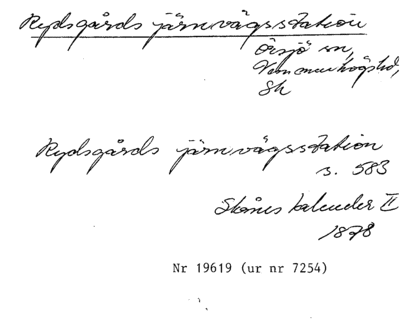 Rydsgårds järnvägsstation
Örsjö sn,
Vemmenhögs hd,
Sk
Rydsgårds järnvägsstation
s. 583
Skånes kalender II
1878
Nr 19619 (ur nr 7254)